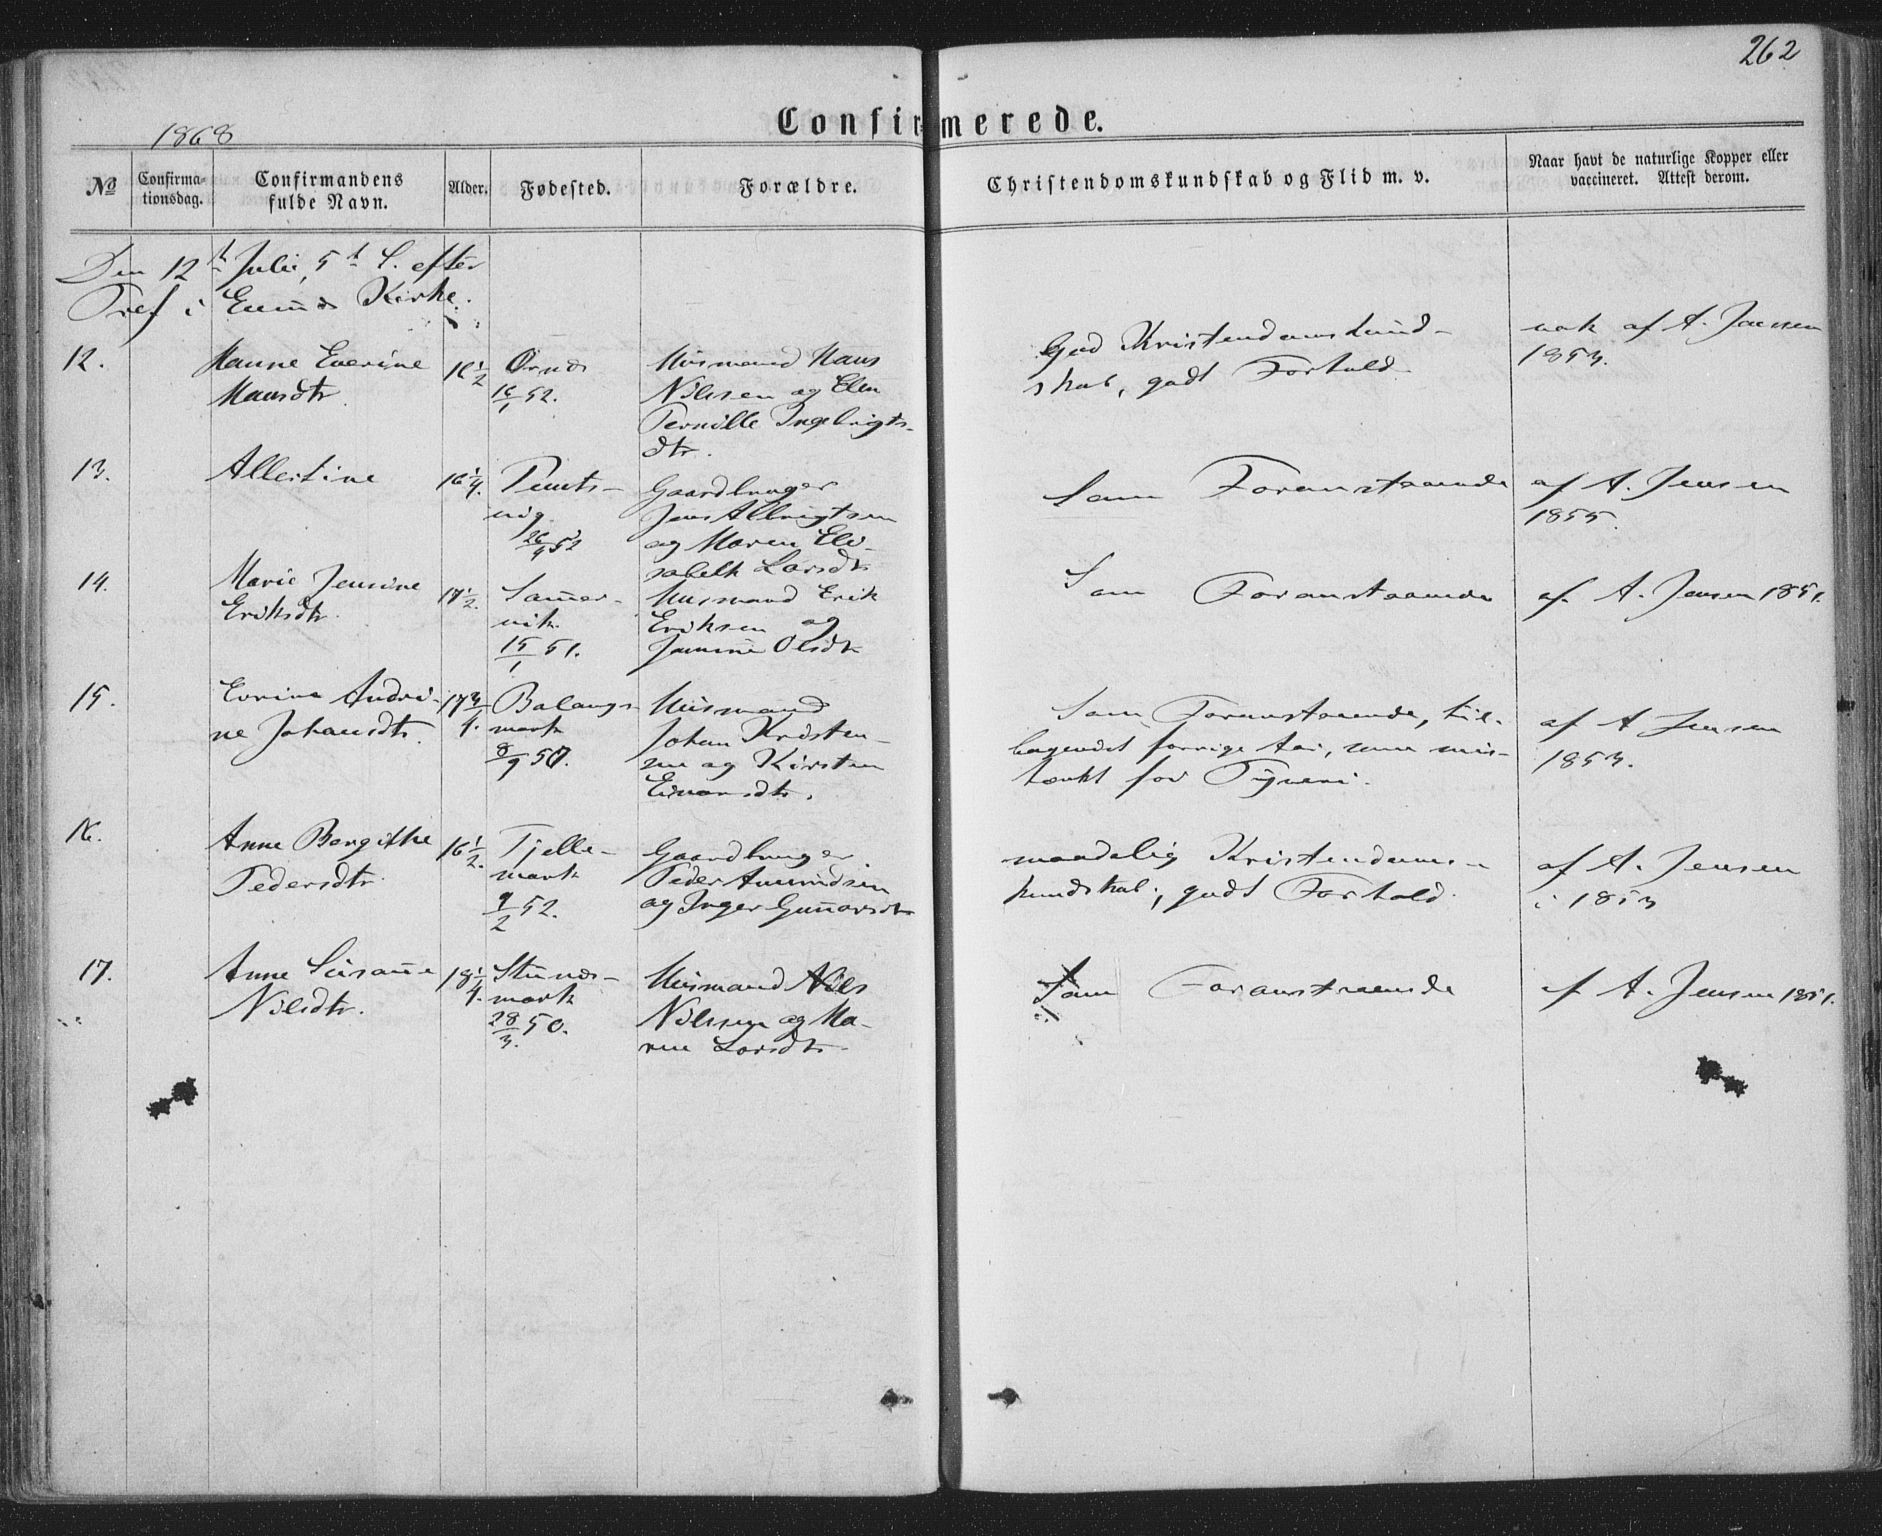 262
1868
Confirmerede.
No
Confirma-
tionsdag.
Confirmandens
fulde Navn.
Alder.
Fødested.
Forældre.
Christendomskundskab og Flid m. v.
Naar havt de naturlige Kopper eller
vaccineret. Attest derom.
Den 12t Juli, 5t S. efter
Tref i Kirke.
12.
Hanne Everine
Hansdtr
16 1/2
Ørnes
16/1 52.
Husmand Hans
Nilssen og Elen
Pernille Ingebrigts-
dtr.
God Kristendomskund-
skab, godt Forhold.
vak af A. Jenssen
1853.
13.
Albertine
16 1/4.
vig
26/4 52
Gaardbruger
Jens Albrigtsen
og Maren Eli-
sabeth Larsdtr
Som Foranstaaende
af A. Jensen
1855.
14.
Marie Jensine
Eriksdtr.
17 1/2.
vik.
15/1 51.
Husmand Erik
Eriksen og
Jensine Olsdtr
Som Foranstaaende
af A. Jensen 1851.
15.
Evrine Andri-
ne Johansdtr.
17 3/4.
Balangs-
mark
8/9 50.
Husmand
Johan Kristen-
sen og Kirsten
Edvardsdtr.
Som Foranstaaende, til-
bagevist forrige Aar, som mis-
tænkt for Tyveri.
af A Jensen
1853.
16.
Anne Bergithe
Pedersdtr.
16 1/2.
Tjelle-
mark
9/2 52.
Gaardbruger
Peder Amundsen
og Inger Gunnarsdtr
maadelig Kristendoms-
kundskab, godt Forhold.
af A. Jensen
i 1853
17.
Anne Susanne
Nilsdtr.
18 1/4.
mark
28/3. 50.
Husmand Nils
Nilssen og Ma-
ren Larsdtr
Som Foranstaaende
af A. Jensen 1851.